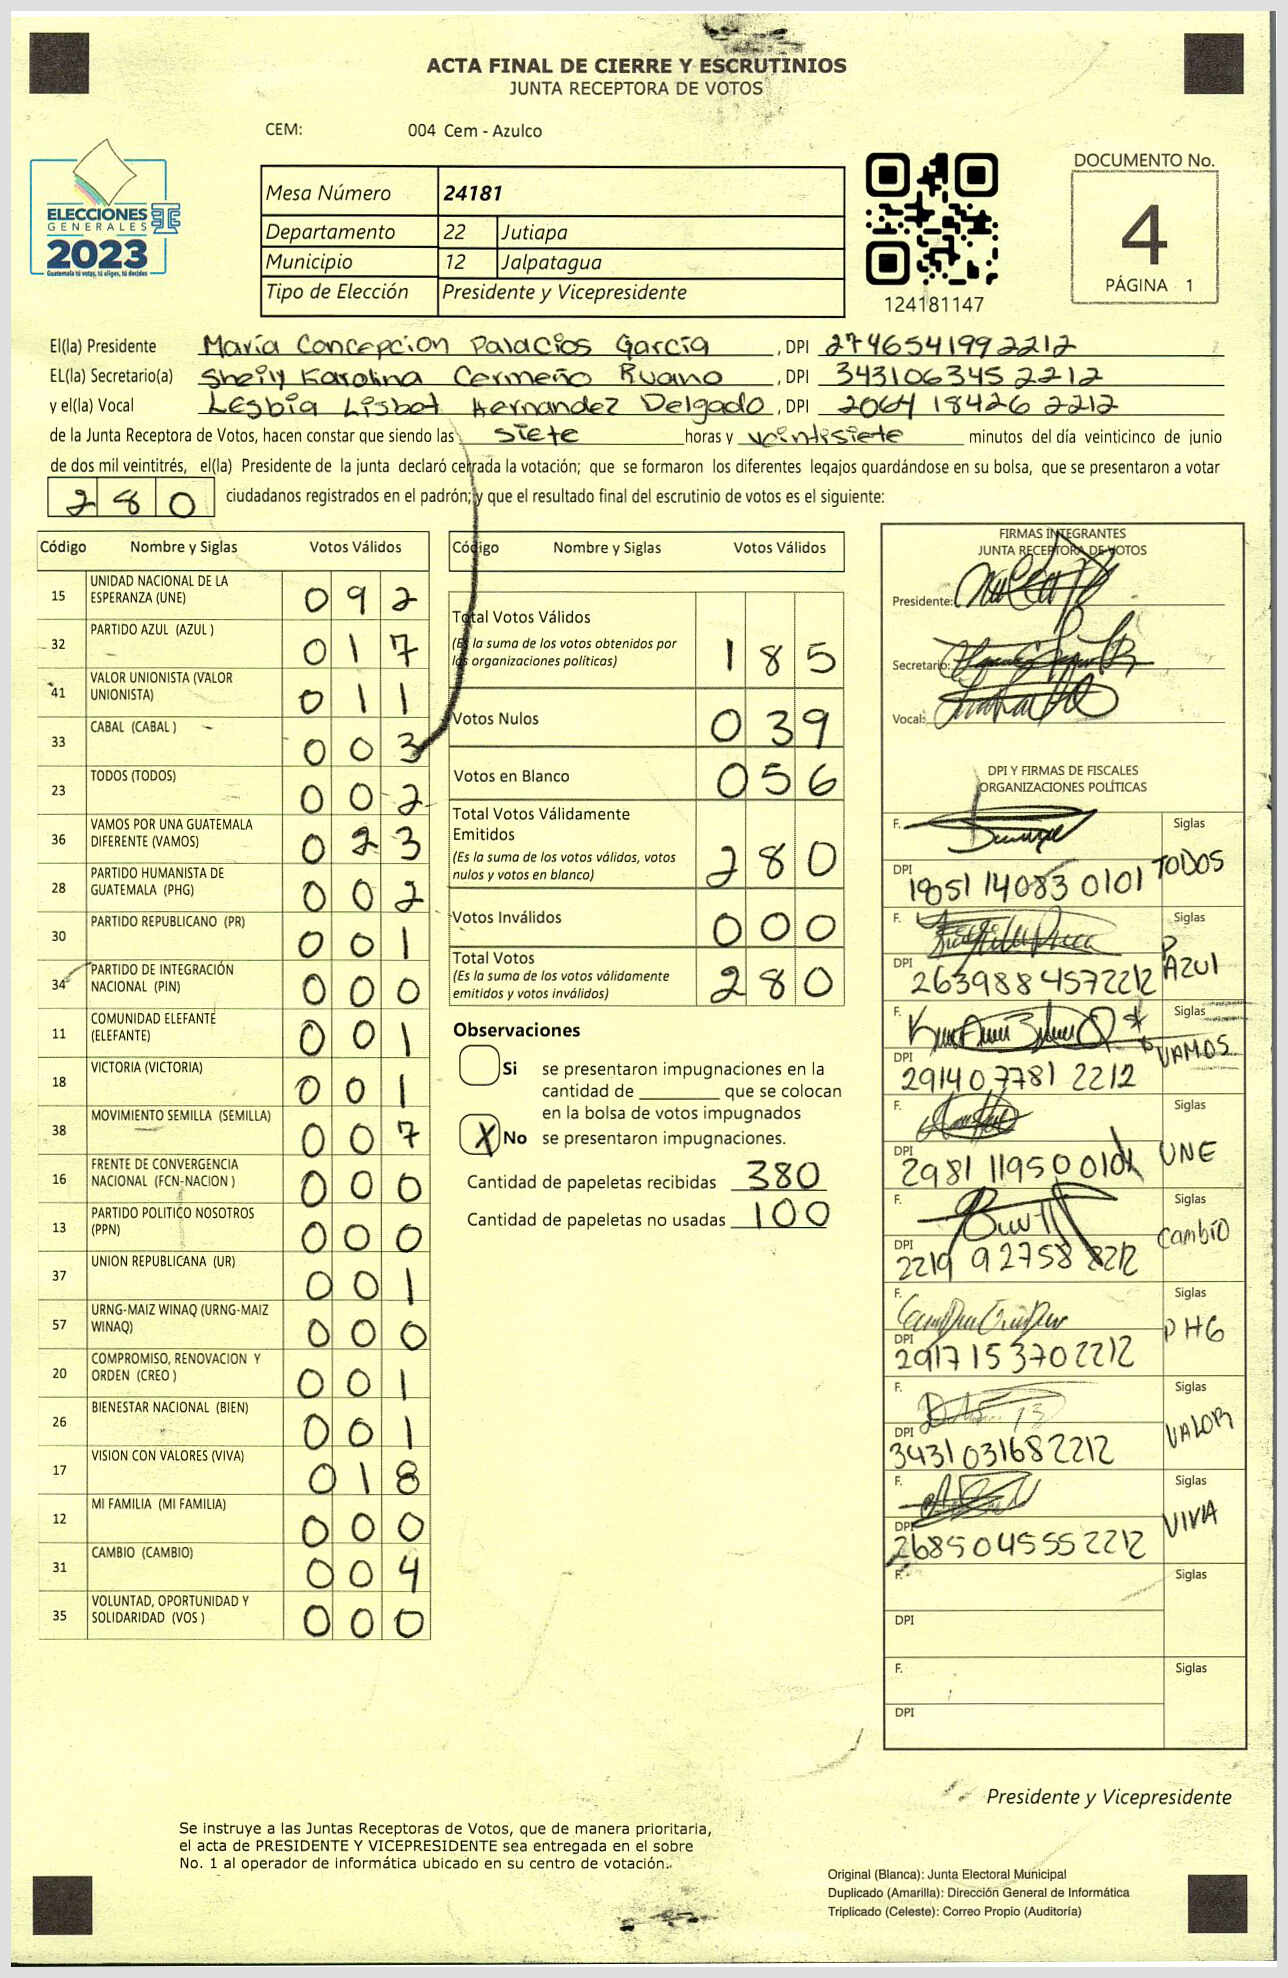 ACTA FINAL DE CIERRE Y ESCRUTINIOS
JUNTA RECEPTORA DE VOTOS
CEM: 004 Cem - Azulco
ELECCIONES
GENERALES
2023
Guatemala tú votas, tú eliges, tú decides
Mesa Número 24181
Departamento 22 Jutiapa
Municipio 12 Jalpatagua
Tipo de Elección Presidente y Vicepresidente
124181147
DOCUMENTO No.
4
PÁGINA 1
El(la) Presidente María Concepcion Palacios García , DPI 2746541992212
EL(la) Secretario(a) Sheily Karolina Cermeño Ruano , DPI 343106345 2212
y el(la) Vocal Lesbia Lisbet Hernandez Delgado , DPI 2064 18426 2212
de la Junta Receptora de Votos, hacen constar que siendo las siete horas y veintisiete minutos del día veinticinco de junio
de dos mil veintitrés, el(la) Presidente de la junta declaró cerrada la votación; que se formaron los diferentes legajos guardándose en su bolsa, que se presentaron a votar
280 ciudadanos registrados en el padrón; y que el resultado final del escrutinio de votos es el siguiente:
Código Nombre y Siglas Votos Válidos
15 UNIDAD NACIONAL DE LA ESPERANZA (UNE) 092
32 PARTIDO AZUL (AZUL ) 017
41 VALOR UNIONISTA (VALOR UNIONISTA) 011
33 CABAL (CABAL ) 003
23 TODOS (TODOS) 002
36 VAMOS POR UNA GUATEMALA DIFERENTE (VAMOS) 023
28 PARTIDO HUMANISTA DE GUATEMALA (PHG) 002
30 PARTIDO REPUBLICANO (PR) 001
34 PARTIDO DE INTEGRACIÓN NACIONAL (PIN) 000
11 COMUNIDAD ELEFANTE (ELEFANTE) 001
18 VICTORIA (VICTORIA) 001
38 MOVIMIENTO SEMILLA (SEMILLA) 007
16 FRENTE DE CONVERGENCIA NACIONAL (FCN-NACION ) 000
13 PARTIDO POLITICO NOSOTROS (PPN) 000
37 UNION REPUBLICANA (UR) 001
57 URNG-MAIZ WINAQ (URNG-MAIZ WINAQ) 000
20 COMPROMISO, RENOVACION Y ORDEN (CREO ) 001
26 BIENESTAR NACIONAL (BIEN) 001
17 VISION CON VALORES (VIVA) 018
12 MI FAMILIA (MI FAMILIA) 000
31 CAMBIO (CAMBIO) 004
35 VOLUNTAD, OPORTUNIDAD Y SOLIDARIDAD (VOS ) 000
Código Nombre y Siglas Votos Válidos
Total Votos Válidos 185
(Es la suma de los votos obtenidos por
las organizaciones políticas)
Votos Nulos 039
Votos en Blanco 056
Total Votos Válidamente
Emitidos 280
(Es la suma de los votos válidos, votos
nulos y votos en blanco)
Votos Inválidos 000
Total Votos 280
(Es la suma de los votos válidamente
emitidos y votos inválidos)
Observaciones
Si se presentaron impugnaciones en la
cantidad de ________ que se colocan
en la bolsa de votos impugnados
X No se presentaron impugnaciones.
Cantidad de papeletas recibidas 380
Cantidad de papeletas no usadas 100
FIRMAS INTEGRANTES
JUNTA RECEPTORA DE VOTOS
Presidente:
Secretario:
Vocal:
DPI Y FIRMAS DE FISCALES
ORGANIZACIONES POLÍTICAS
F. Siglas
DPI 19051 14083 0101 TODOS
F. Siglas
DPI 2639884572212 P AZUL
F. Siglas
DPI 291407781 2212 VAMOS
F. Siglas
DPI 2981 11950 0101 UNE
F. Siglas
DPI 2219 92758 2212 Cambio
F. Siglas
DPI 2917153702212 PHG
F. Siglas
DPI 3431031682212 VALOR
F. Siglas
DPI 2685045552212 VIVA
F. Siglas
DPI
F. Siglas
DPI
Presidente y Vicepresidente
Se instruye a las Juntas Receptoras de Votos, que de manera prioritaria,
el acta de PRESIDENTE Y VICEPRESIDENTE sea entregada en el sobre
No. 1 al operador de informática ubicado en su centro de votación.
Original (Blanca): Junta Electoral Municipal
Duplicado (Amarilla): Dirección General de Informática
Triplicado (Celeste): Correo Propio (Auditoría)